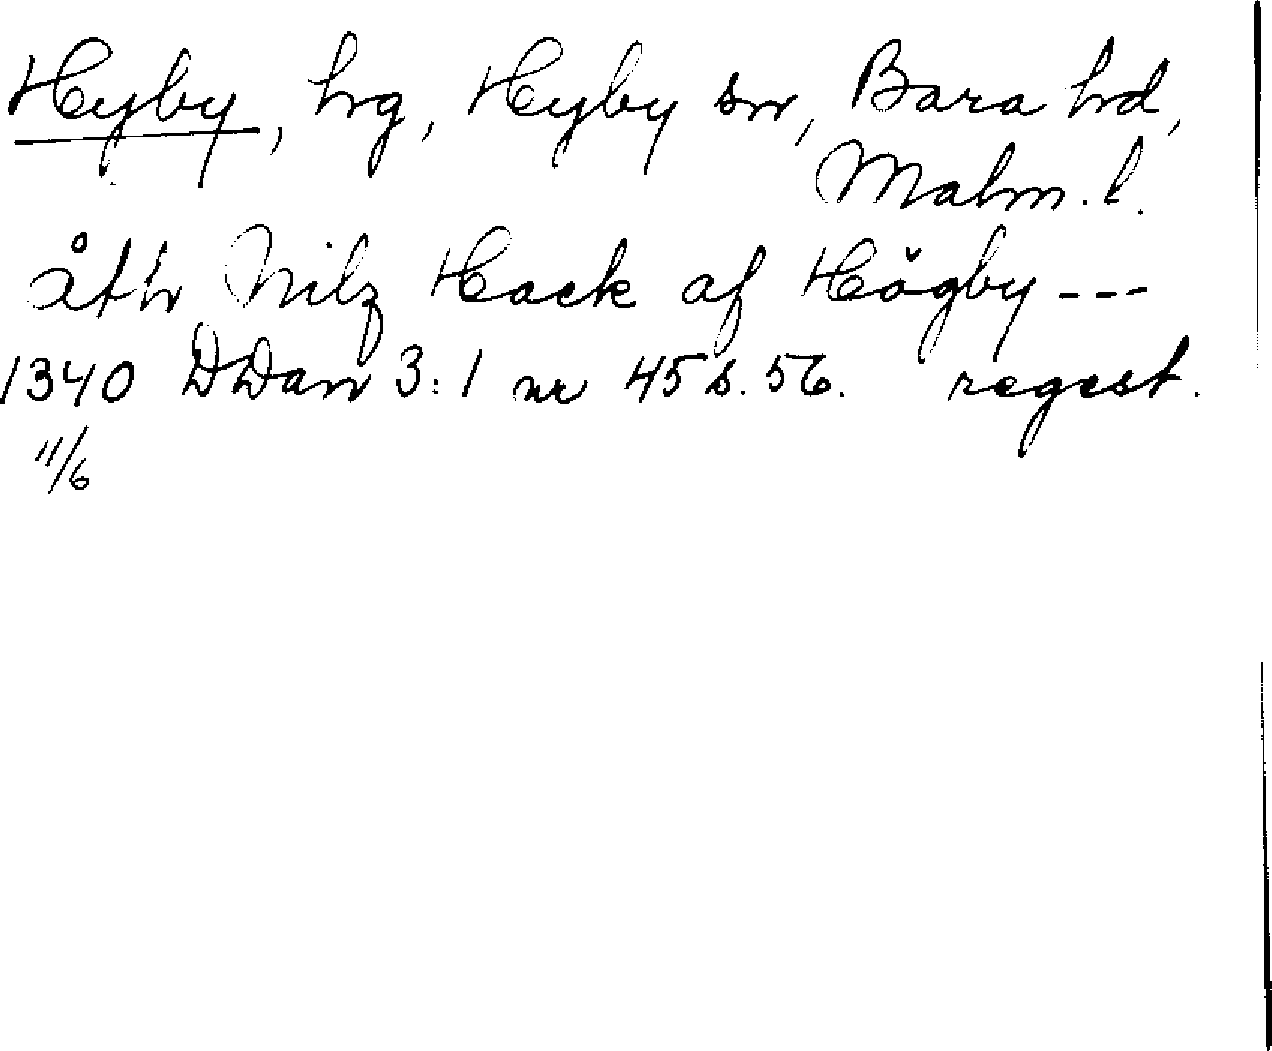 Hyby, hrg, Hyby sn, Bara hd,
Malm. l.
åt h Nilz Hack af Högby ---
1340 DDan 3:1 nr 45 s. 56. regest.
11/6